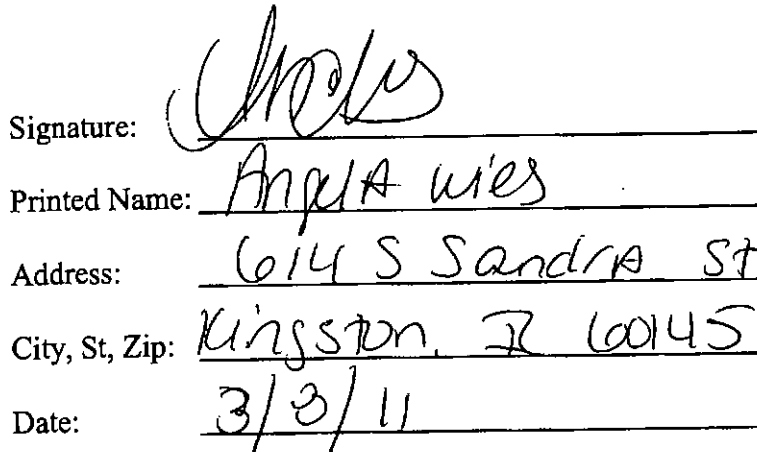 Signature:
Printed Name: Angela Wies
Address: 614 S Sandra St
City, St, Zip: Kingston, IL 60145
Date: 3/3/11